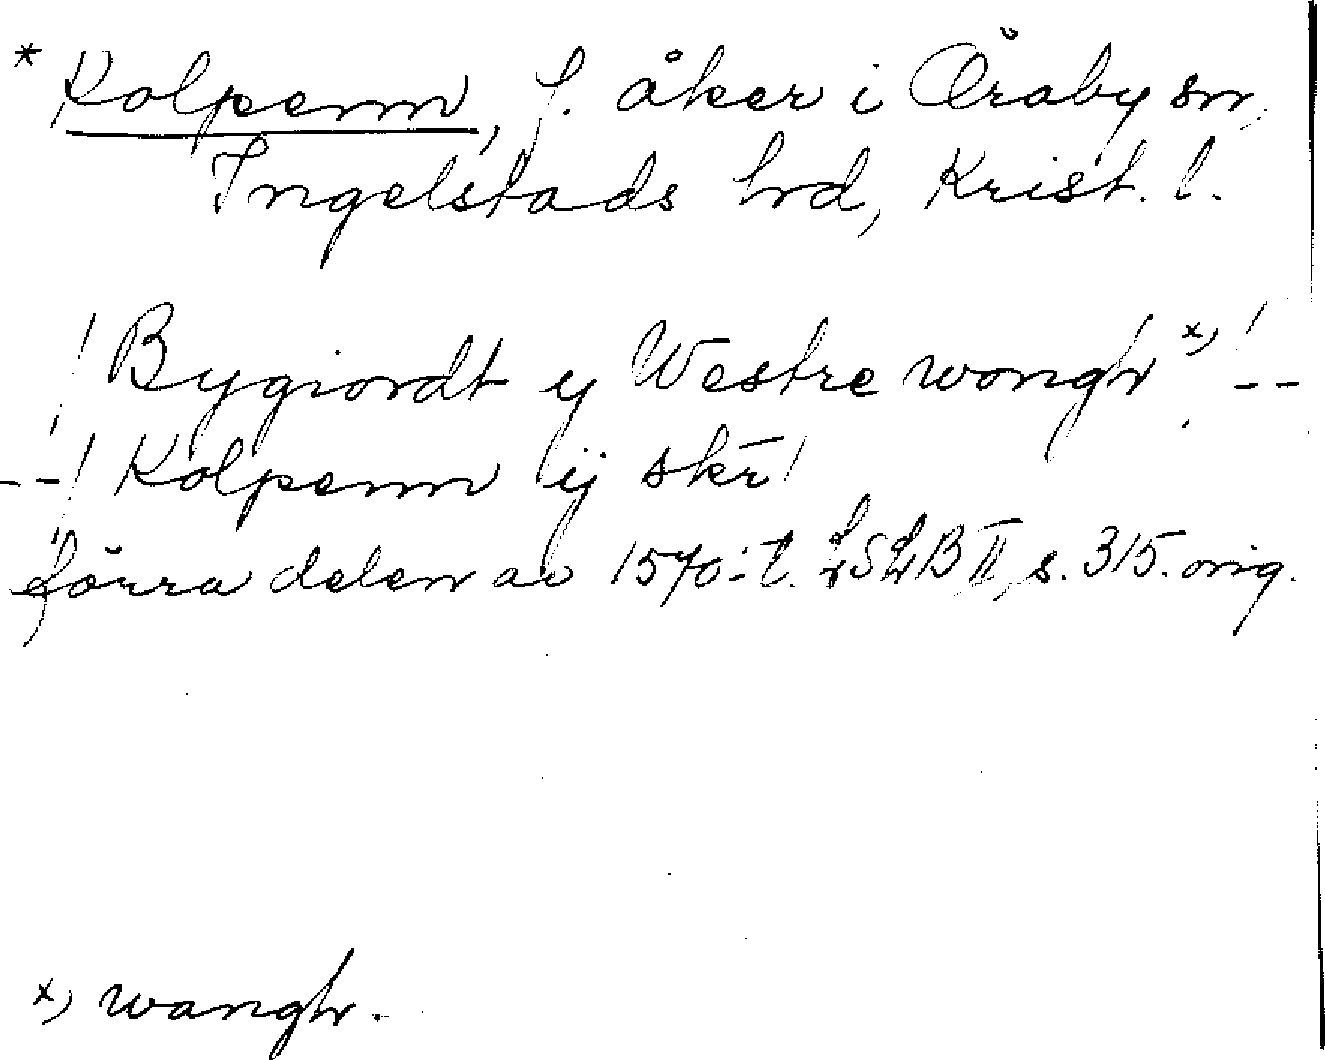 * Kolpenn, f. åker i Öraby sn,
Ingelstads hrd, Krist. l.
! Bygiordt y Westre wongh x) ! --
--! Kolpenn ij skr̄ !
förra delen av 1570-t. LSLB II, s. 315. orig.
x) wangh.